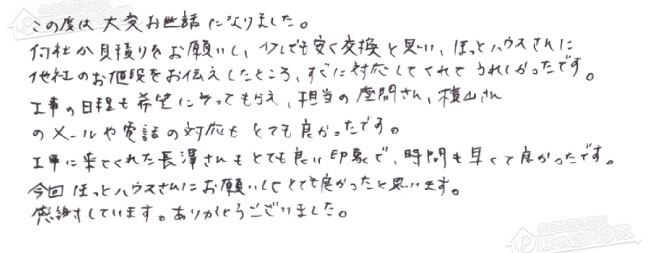 この度は大変お世話になりました。
何社か見積りをお願いし、少しでも安く交換と思い、ほっとハウスさんに
他社のお値段をお伝えしたところ、すぐに対応してくれてうれしかったです。
工事の日程も希望にそってもらえ、担当の座間さん、横山さん
のメールや電話の対応もとても良かったです。
工事に来てくれた長澤さんもとても良い印象で、時間も早くて良かったです。
今回ほっとハウスさんにお願いしてとても良かったと思います。
感謝しています。ありがとうございました。